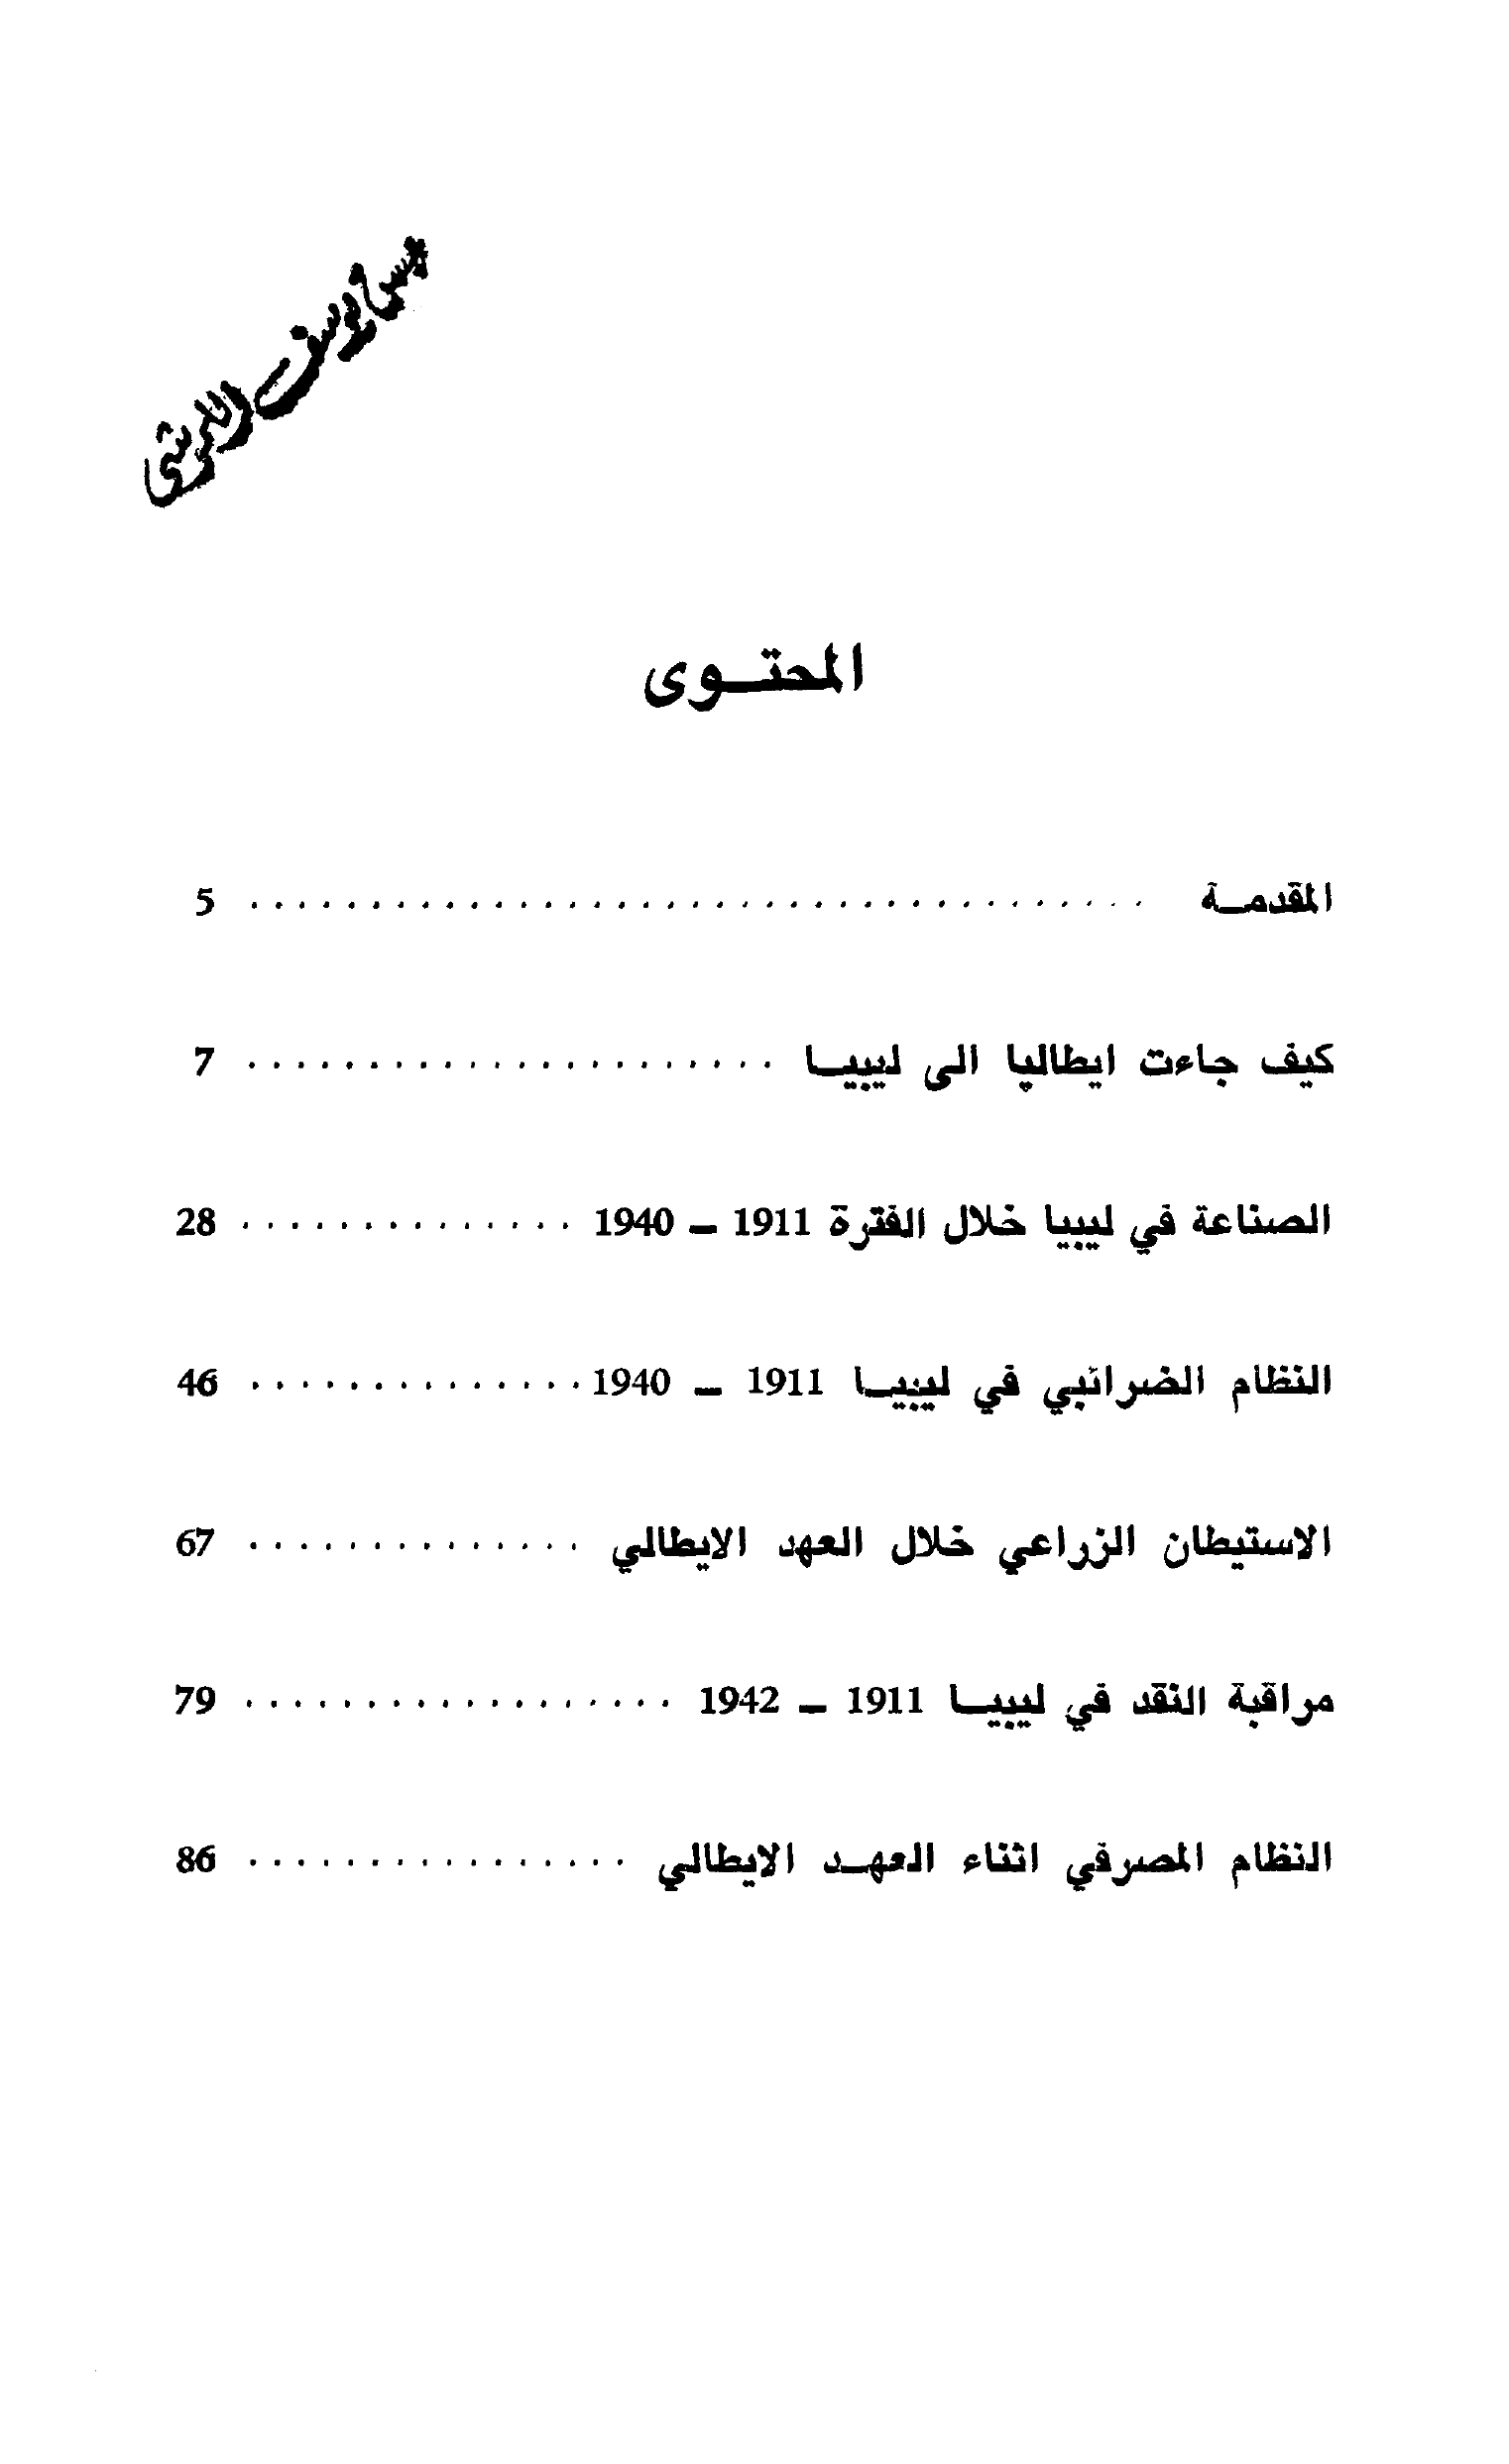 المحتوى
المقدمة ................ 5
كيف جاءت ايطاليا الى ليبيا ................ 7
الصناعة في ليبيا خلال الفترة 1911 – 1940 ................ 28
النظام الضرائبي في ليبيا 1911 – 1940 ................ 46
الاستيطان الزراعي خلال العهد الايطالي ................ 67
مراقبة النقد في ليبيا 1911 – 1942 ................ 79
النظام المصرفي اثناء العهد الايطالي ................ 86